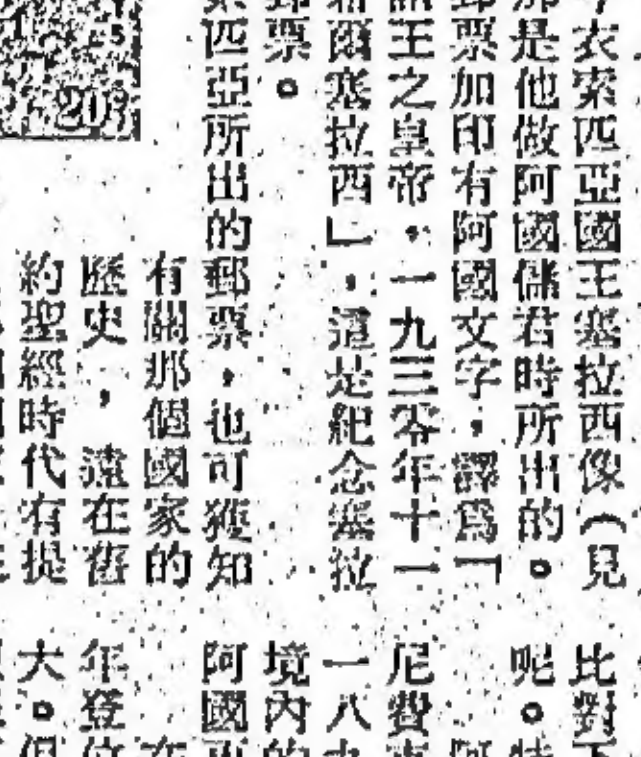 衣索匹亞國王塞拉西像(見
是他做阿國儲君時所出的。
票加印有阿國文字:譯爲「
王之皇帝,一九三零年十一
爾塞拉西」,這是紀念塞拉
票。
匹亞所出的郵票,也可獲知
有關那個國家的
歷史,遠在舊
約聖經時代有提
20
比對
呢。
尼費
一八
境內
阿國
年登
大。